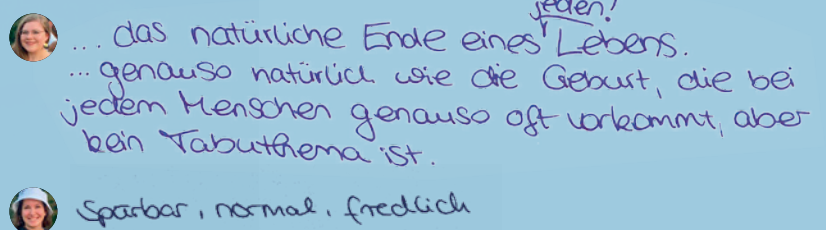 jeden!
... das natürliche Ende eines Lebens.
... genauso natürlich wie die Geburt, die bei
jedem Menschen genauso oft vorkommt, aber
kein Tabuthema ist.
Spürbar, normal, friedlich